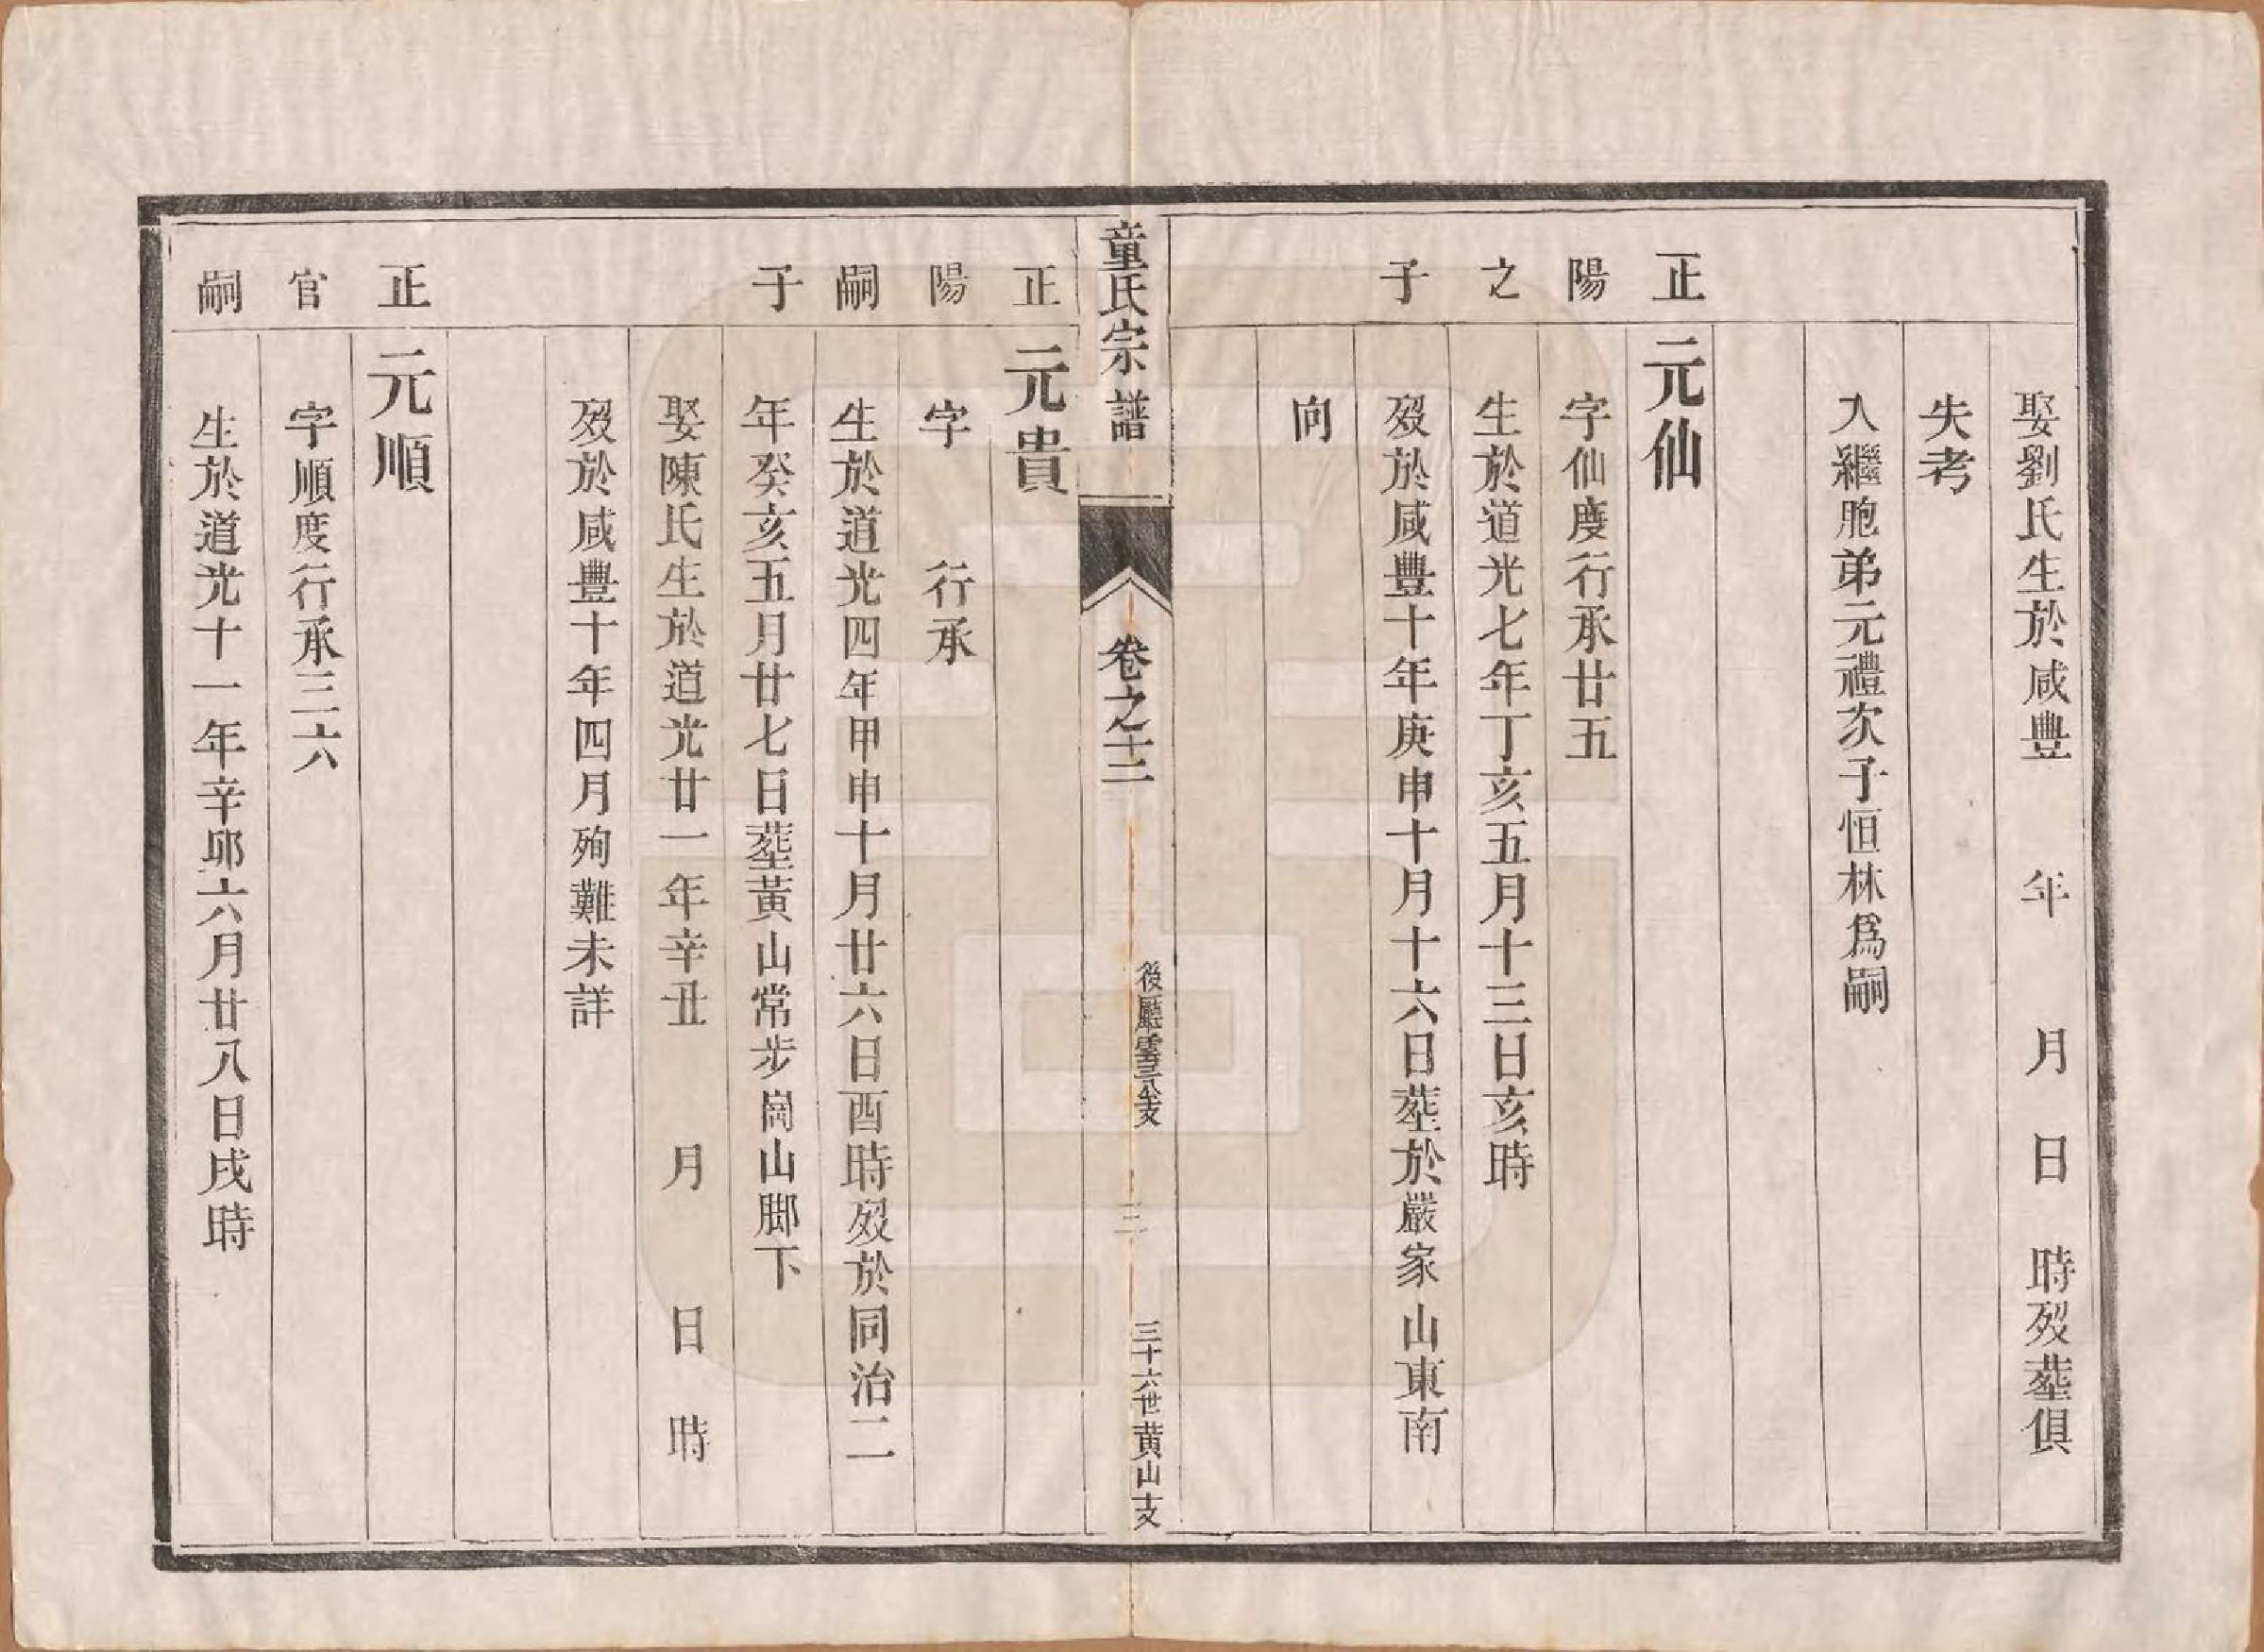 娶劉氏生於咸豐 年 月 日 時歿塟俱
失考
入繼胞弟元禮次子恒林爲嗣
正 元仙
陽 字仙度行承廿五
之 生於道光七年丁亥五月十三日亥時
子 歿於咸豐十年庚申十月十六日塟於嚴家山東南
向
童氏宗譜 卷之十二 後廳雲三公支 三 三十六世黄山支
正 元貴
陽 字 行承
嗣 生於道光四年甲申十月廿六日酉時歿於同治二
子 年癸亥五月廿七日塟黃山常步崗山脚下
娶陳氏生於道光廿一年辛丑 月 日 時
歿於咸豐十年四月殉難未詳
正 元順
官 字順度行承三六
嗣 生於道光十一年辛卯六月廿八日戌時